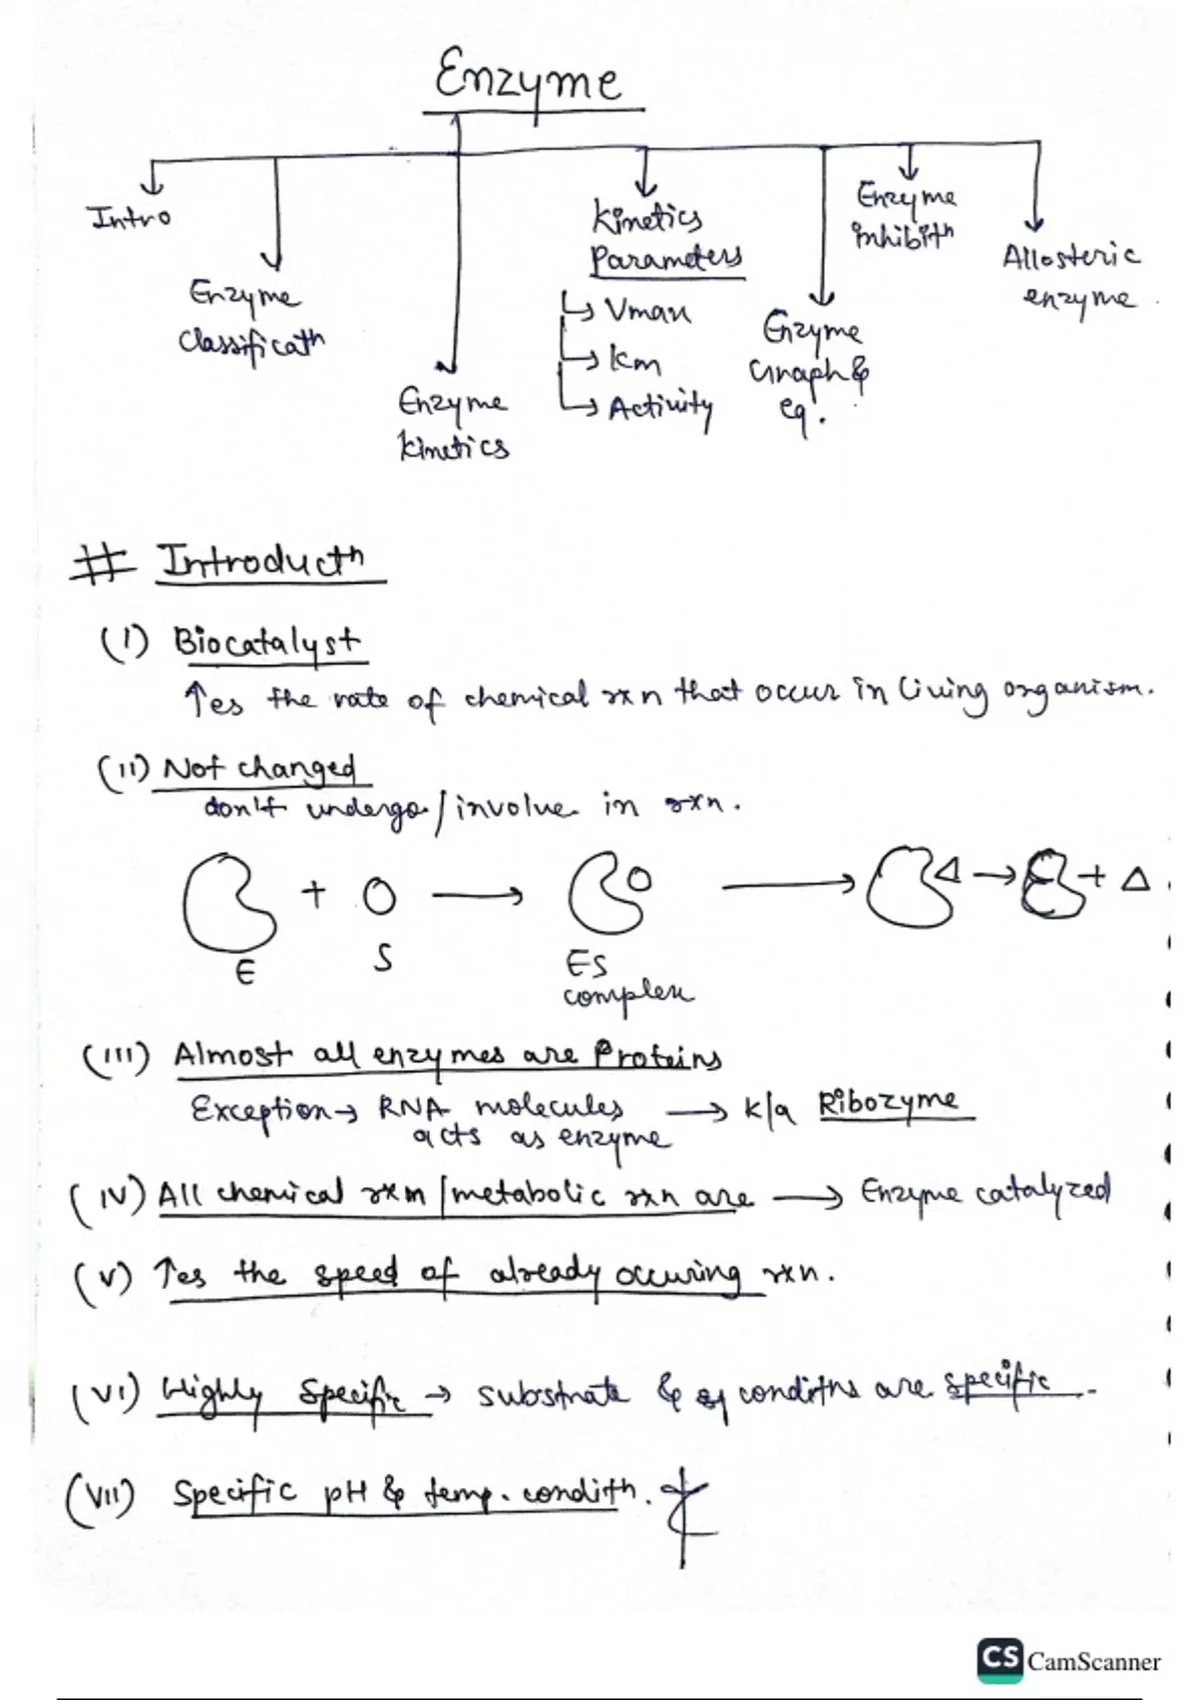 Enzyme
Intro
Enzyme
Classificatn
Enzyme
kinetics
Kinetics
Parameters
↳ Vmax
↳ Km
↳ Activity
Enzyme
Graph &
eq.
Enzyme
inhibitn
Allosteric
enzyme
# Introductn
(I) Biocatalyst
↑es the rate of chemical rxn that occur in living organism.
(II) Not changed
don't undergo / involve in rxn.
+ → → → + Δ
E S ES
complex
(III) Almost all enzymes are Proteins
Exception → RNA molecules → k/a Ribozyme
acts as enzyme
(IV) All chemical rxn / metabolic rxn are → Enzyme catalyzed
(V) ↑es the speed of already occuring rxn.
(VI) Highly Specific → substrate & conditns are specific.
(VII) Specific pH & temp. conditn.
CS CamScanner